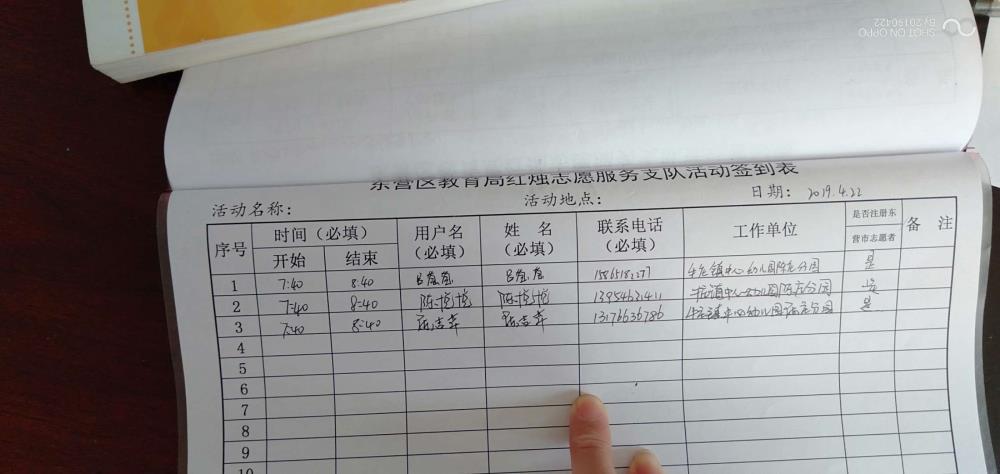 SHOT ON OPPO
By 20190422
东营区教育局红烛志愿服务支队活动签到表
活动名称： 活动地点： 日期： 2019.4.22
序号 时间（必填） 用户名（必填） 姓 名（必填） 联系电话（必填） 工作单位 是否注册东营市志愿者 备 注
开始 结束
1 7:40 8:40 牛庄镇中心幼儿园陈庄分园 是
2 7:40 8:40 陈悦悦 陈悦悦 13954621411 牛庄镇中心幼儿园陈庄分园 是
3 7:40 8:40 13176636786 牛庄镇中心幼儿园陈庄分园 是
4
5
6
7
8
9
10